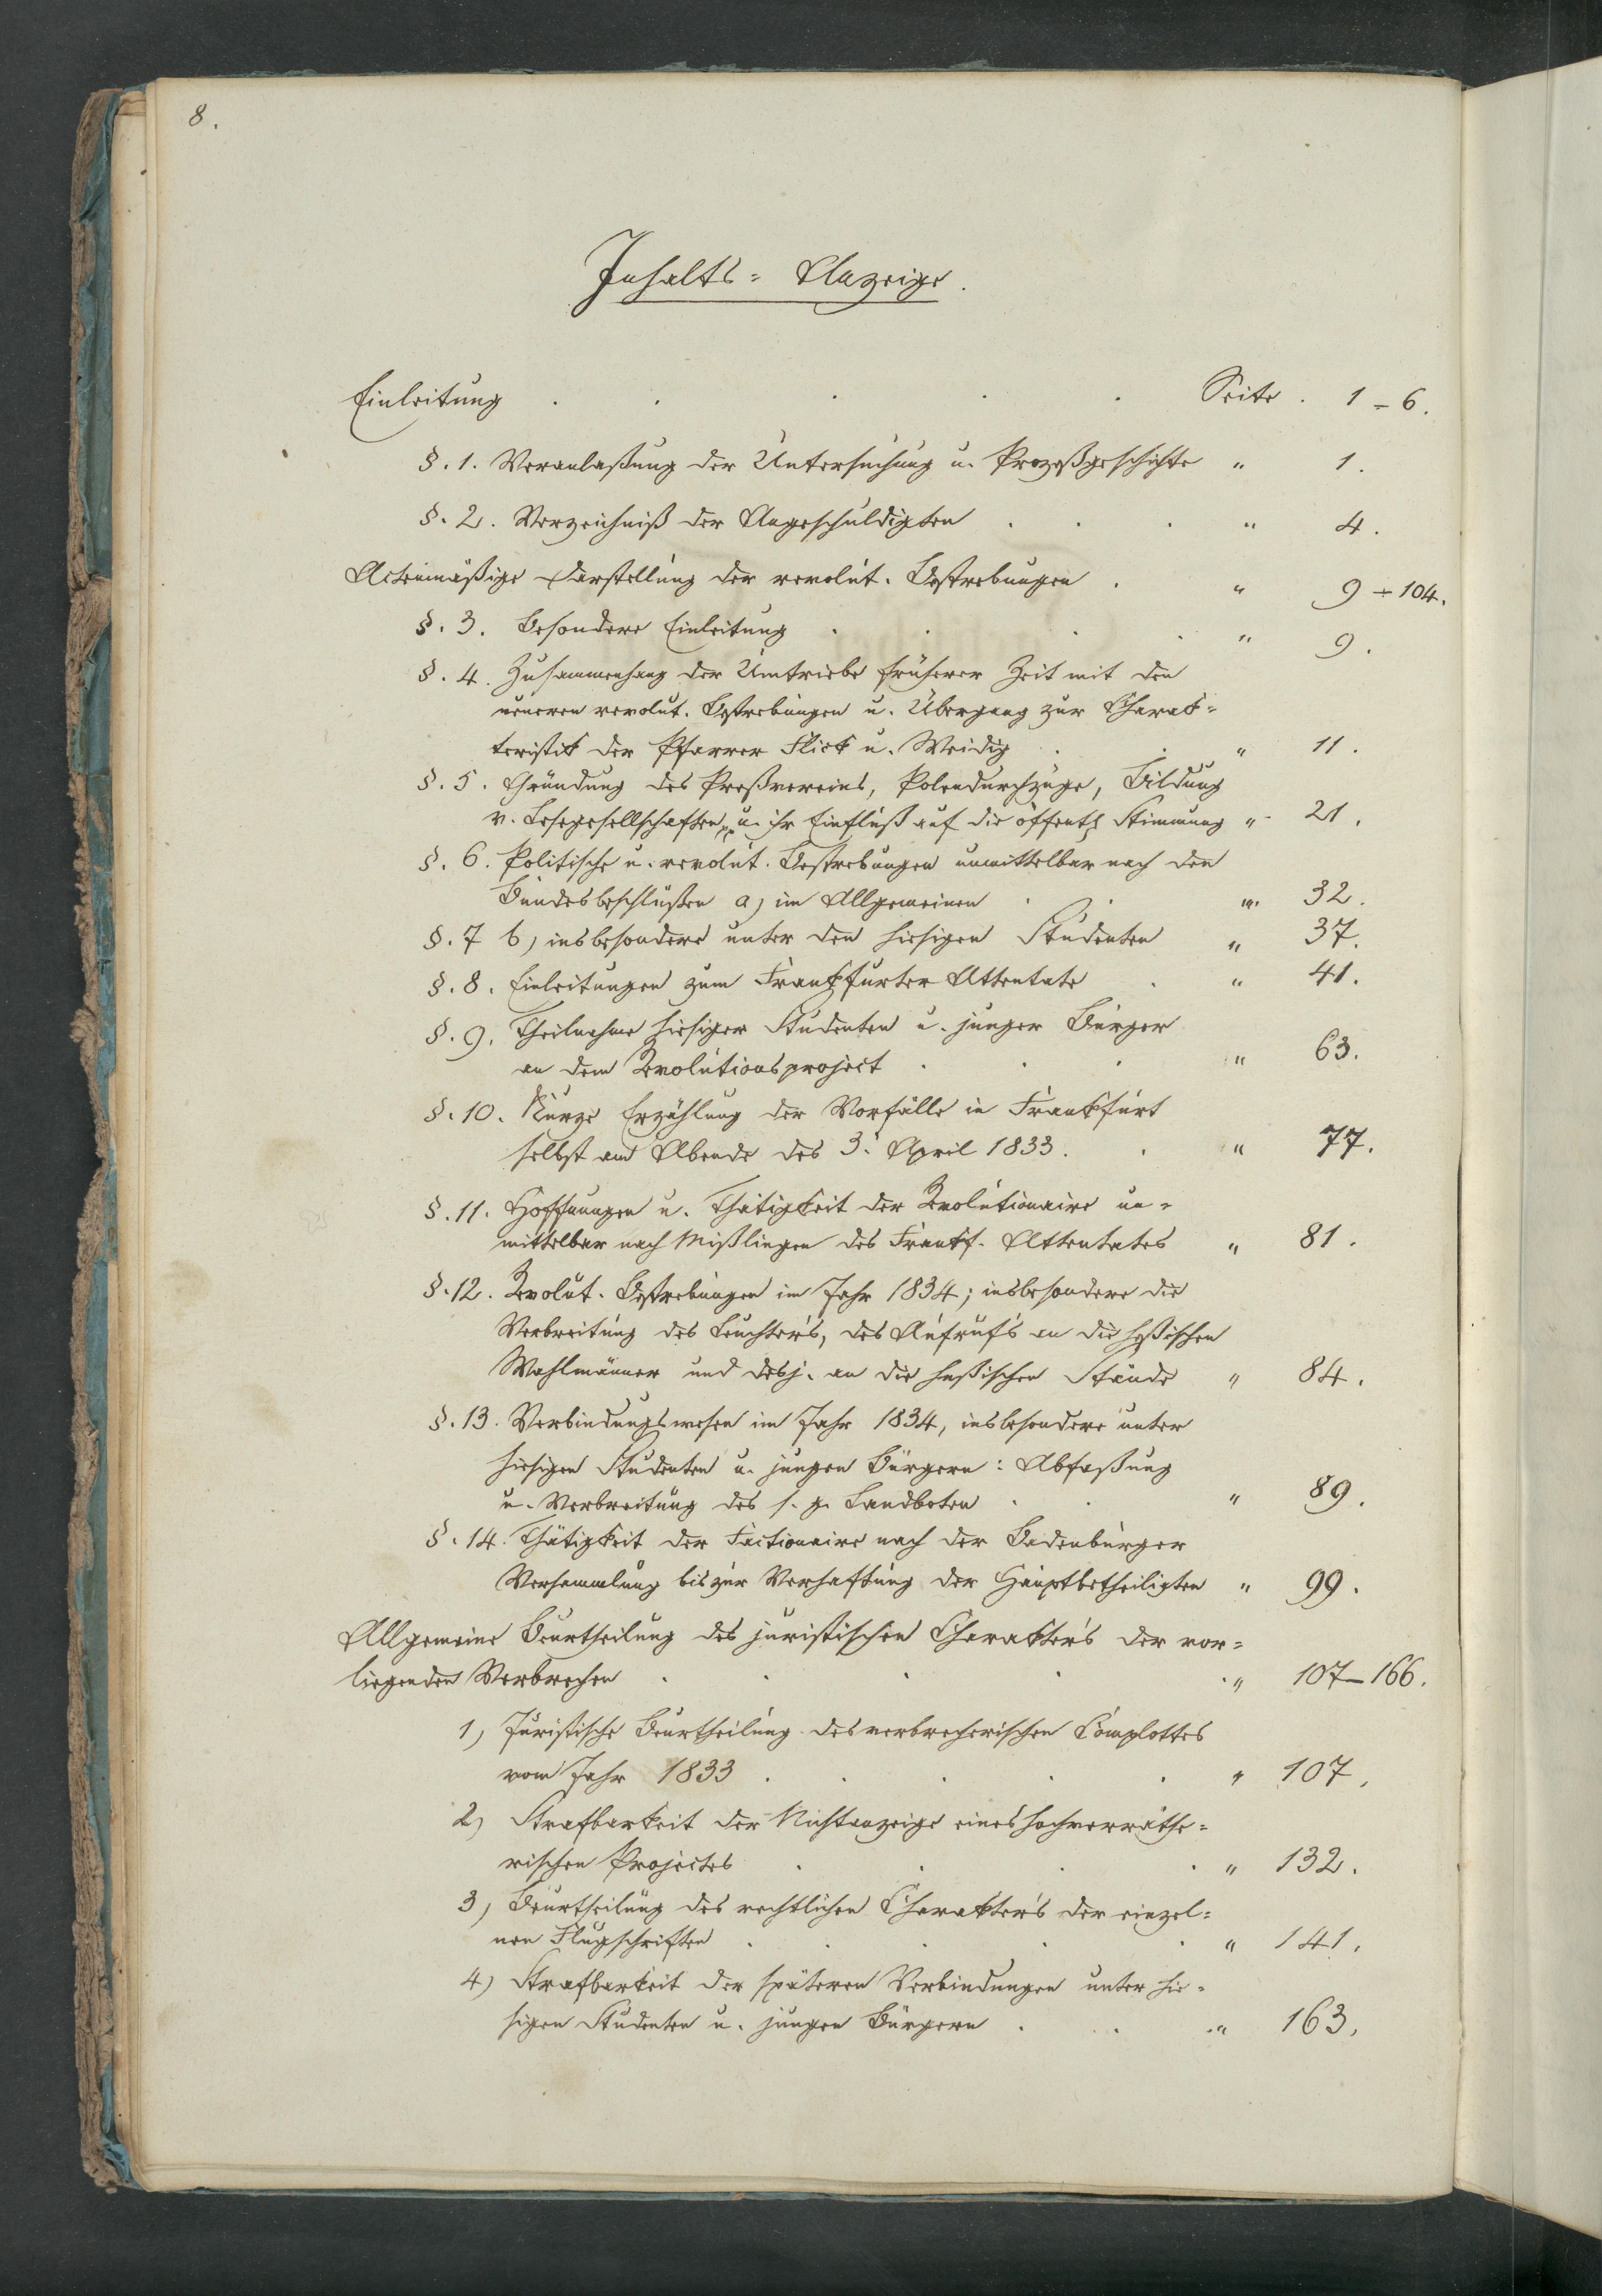 8.
Inhalts=Anzeige.
Einleitung . . . . . Seite . 1-6.
§. 1. Veranlaßung der Untersuchung u. Prozeßgeschichte " 1.
§. 2. Verzeichniß der Angeschuldigten . . . " 4.
Actenmäßige Darstellung der revolut. Bestrebungen . " 9-104.
§. 3. Besondere Einleitung . . . . " 9.
§. 4. Zusammenhang der Umtriebe früherer Zeit mit den
neueren revolut. Bestrebungen u. Übergang zur Charak=
teristik der Pfarrer Flick u. Weidig . . " 11.
§. 5. Gründung des Preßvereins, Polendurchzüge, Bildung
v. Lesegesellschaften u. ihr Einfluß auf die öffentl Stimmung " 21.
§. 6. Politische u. revolut. Bestrebungen unmittelbar nach den
Bundesbeschlüßen a) im Allgemeinen . . " 32.
§. 7 b) insbesondere unter den hiesigen Studenten " 37.
§. 8. Einleitungen zum Frankfurter Attentate . " 41.
§. 9. Theilnahme hiesiger Studenten u. junger Bürger
an dem Revolutionsproject . . . " 63.
§. 10. Kurze Erzählung der Vorfälle in Frankfurt
selbst am Abende des 3. April 1833. . " 77.
§. 11. Hoffnungen u. Thätigkeit der Revolutionaire un=
mittelbar nach Mißlingen des Frankf. Attentates " 81.
§. 12. Revolut. Bestrebungen im Jahr 1834; insbesondere die
Verbreitung des Leuchter's, des Aufruf's an die heßischen
Wahlmänner und desj. an die heßischen Stände " 84.
§. 13. Verbindungswesen im Jahr 1834, insbesondere unter
hiesigen Studenten u. jungen Bürgern: Abfaßung
u. Verbreitung des s. g. Landboten . . " 89.
§. 14. Thätigkeit der Factionaire nach der Badenburger
Versammlung bis zur Verhaftung der Hauptbetheiligten " 99.
Allgemeine Beurtheilung des juristischen Charakter's der vor=
liegenden Verbrechen . . . . . " 107-166.
1) Juristische Beurtheilung des verbrecherischen Complottes
vom Jahr 1833 . . . . . " 107.
2) Strafbarkeit der Nichtanzeige eines hochverräthe=
rischen Projectes . . . . " 132.
3) Beurtheilung des rechtlichen Charakter's der einzel=
nen Flugschriften . . . . . " 141.
4) Strafbarkeit der späteren Verbindungen unter hie=
sigen Studenten u. jungen Bürgern . . . " 163.